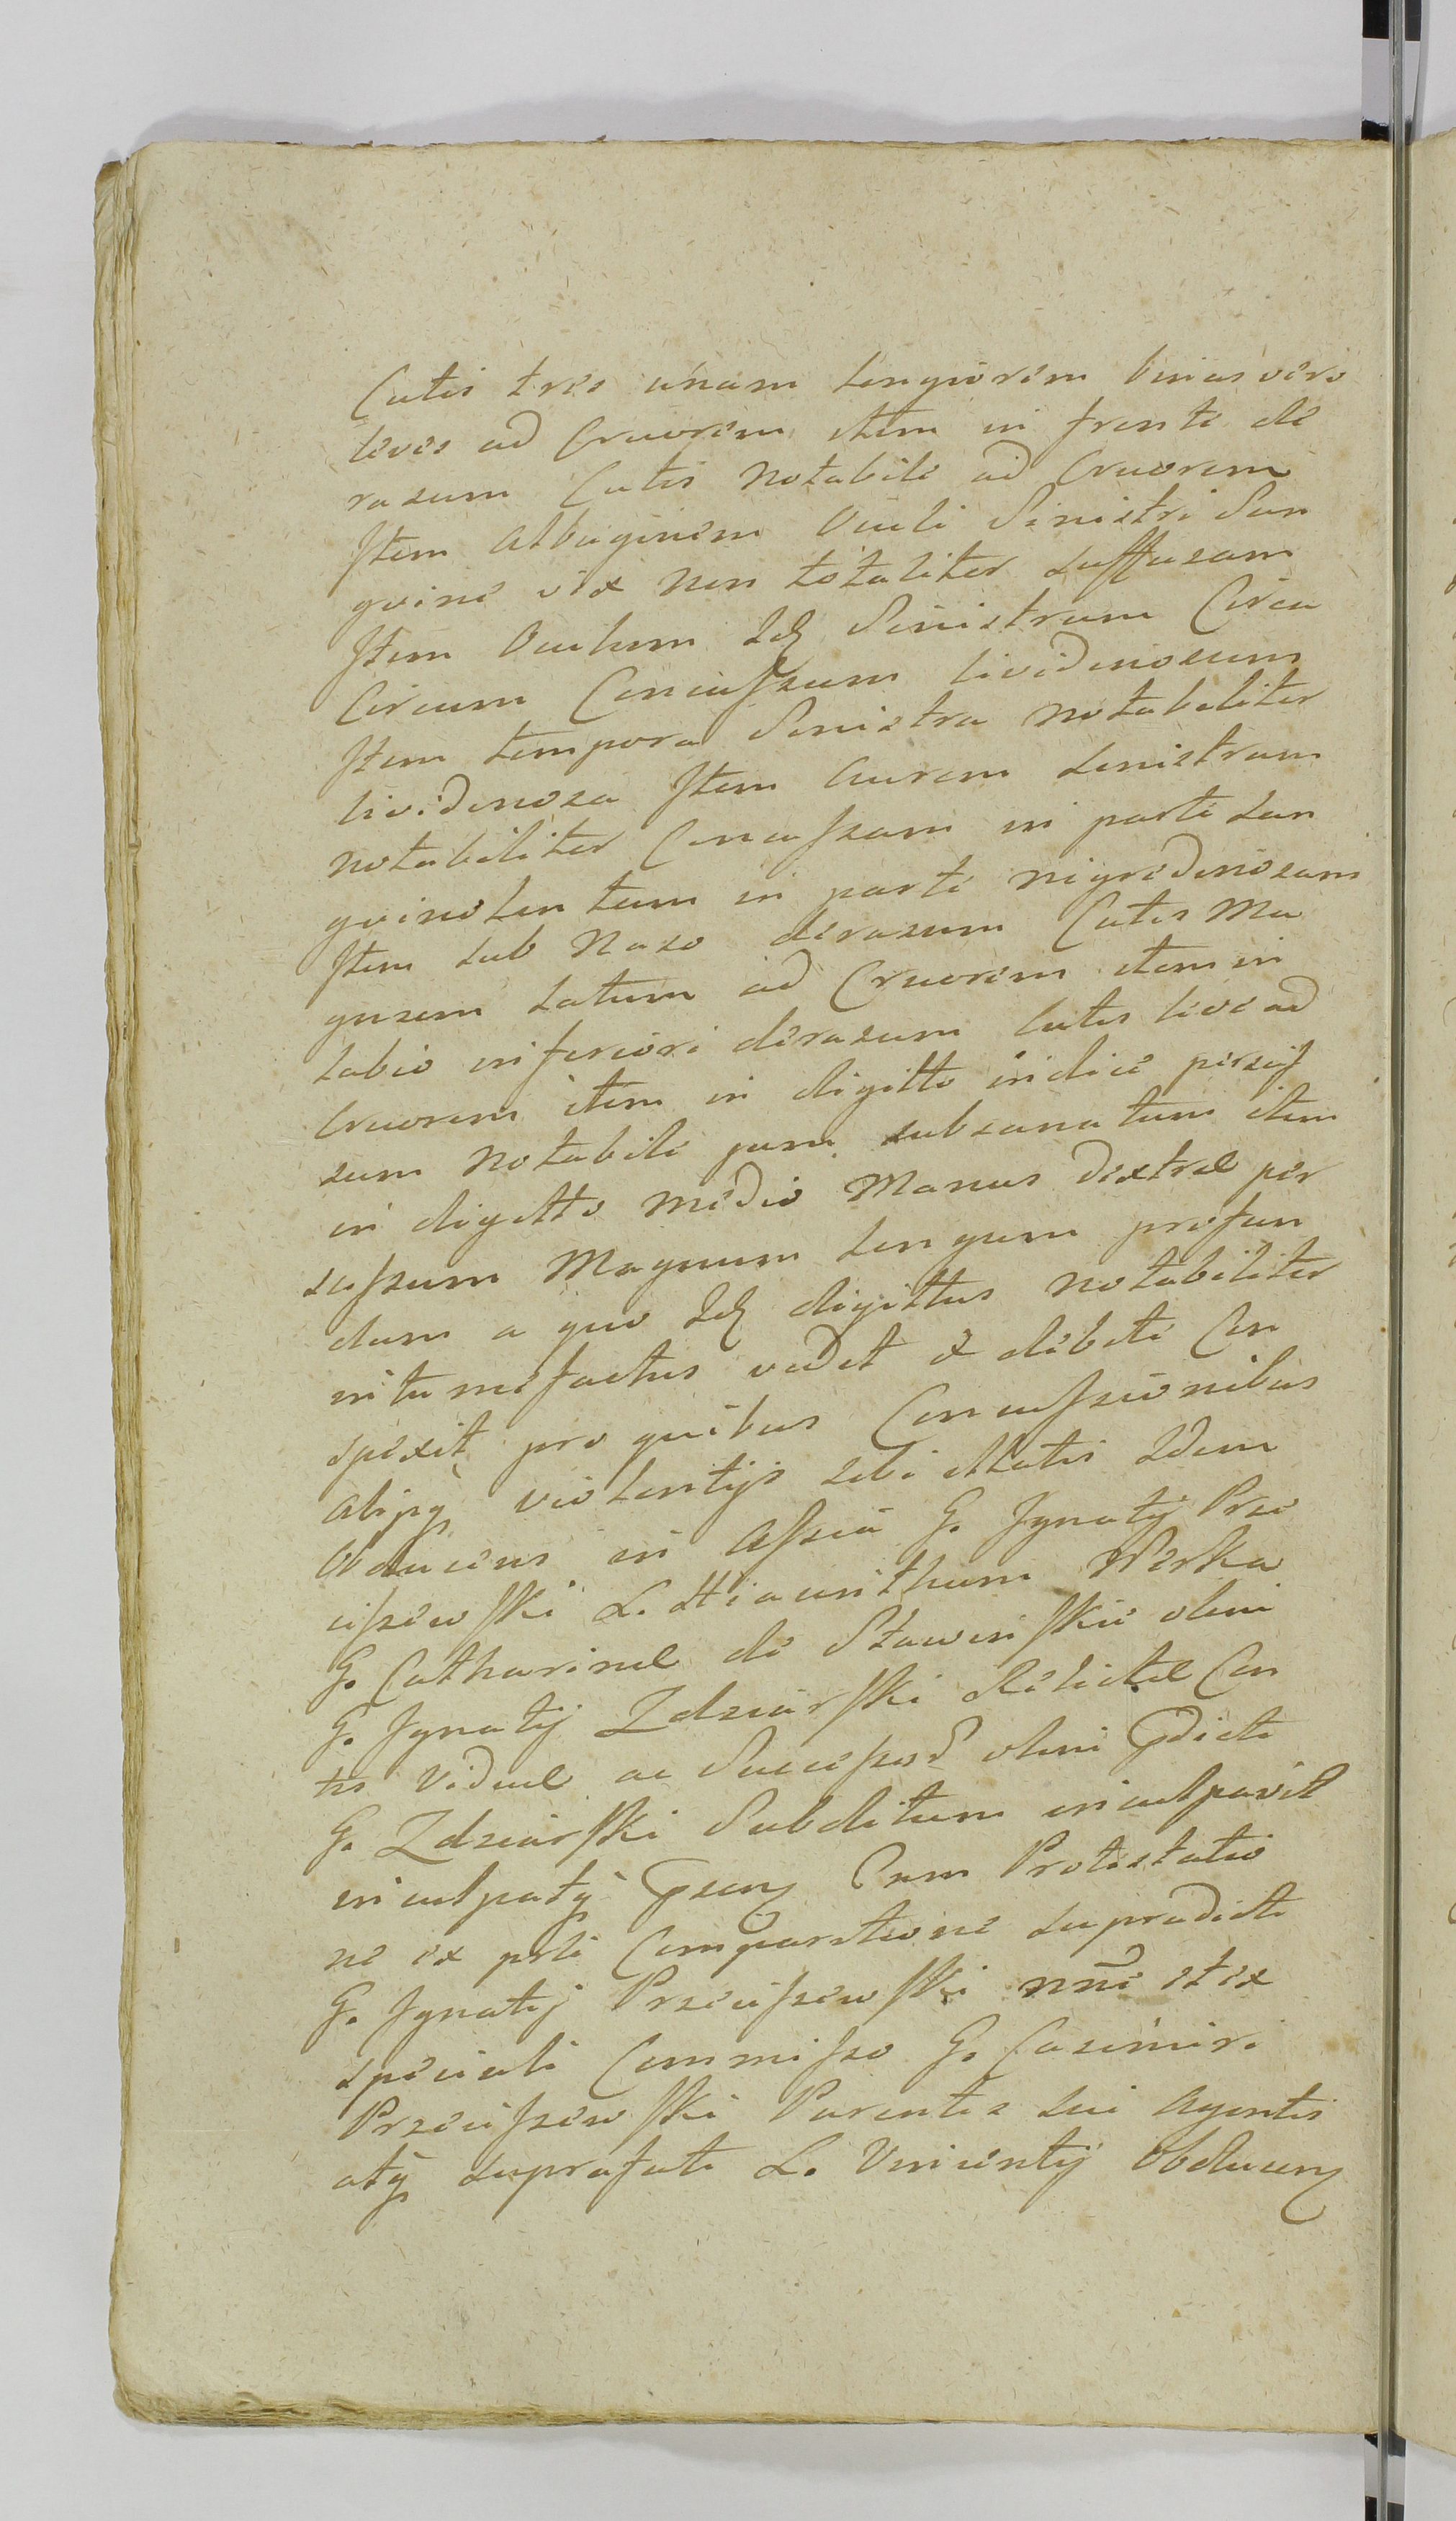 Cutis tres unam longiorem binas vero
leves ad Cruorem item in fronte de
rasum Cutis notabile ad Cruorem
Item Albuginem Oculi Sinistri San
gvine vix non totaliter suffusam
Item Oculum Sinistrum Circa
Circum Concussum lividinosum
Item tempora Sinistra notabiliter
lividinosa Item Aurem sinistram
notabiliter Concussam in parte san
gvinolentam in parte nigredinosam
Item sub Naso derasum Cutis Ma
gnum latum ad Cruorem item in
labio inferiori derasum Cutis leve ad
Cruorem item in digitto indice perscis
sum notabile jam subsanatum item
in digitto medio Manus dextrae per
scissum Magnum longum profun
dum a quo digittus notabiliter
intumefactus vidit et debite Con
spexit pro quibus Concussionibus
Alijsq violentijs sibi illatis Idem
Obducens in Assia G. Ignatij Prze
ciszewski L. Hiacinthum Werka
G. Catharinae de Sławinskie olim
G. Ignatij Zdziarski Relictae Con
tis Viduae ac Success olim pdicti
G. Zdziarski Subditum inculpavit
inculpatq Cum Protestatio
ne ex pste Comparitione supradicti
G. Ignatij Przeciszewski nne et ex
speciali Commisso G. Casimiri
Przeciszewski Parentis sui Agentis
atq suprafati L. Vincentij Obducen